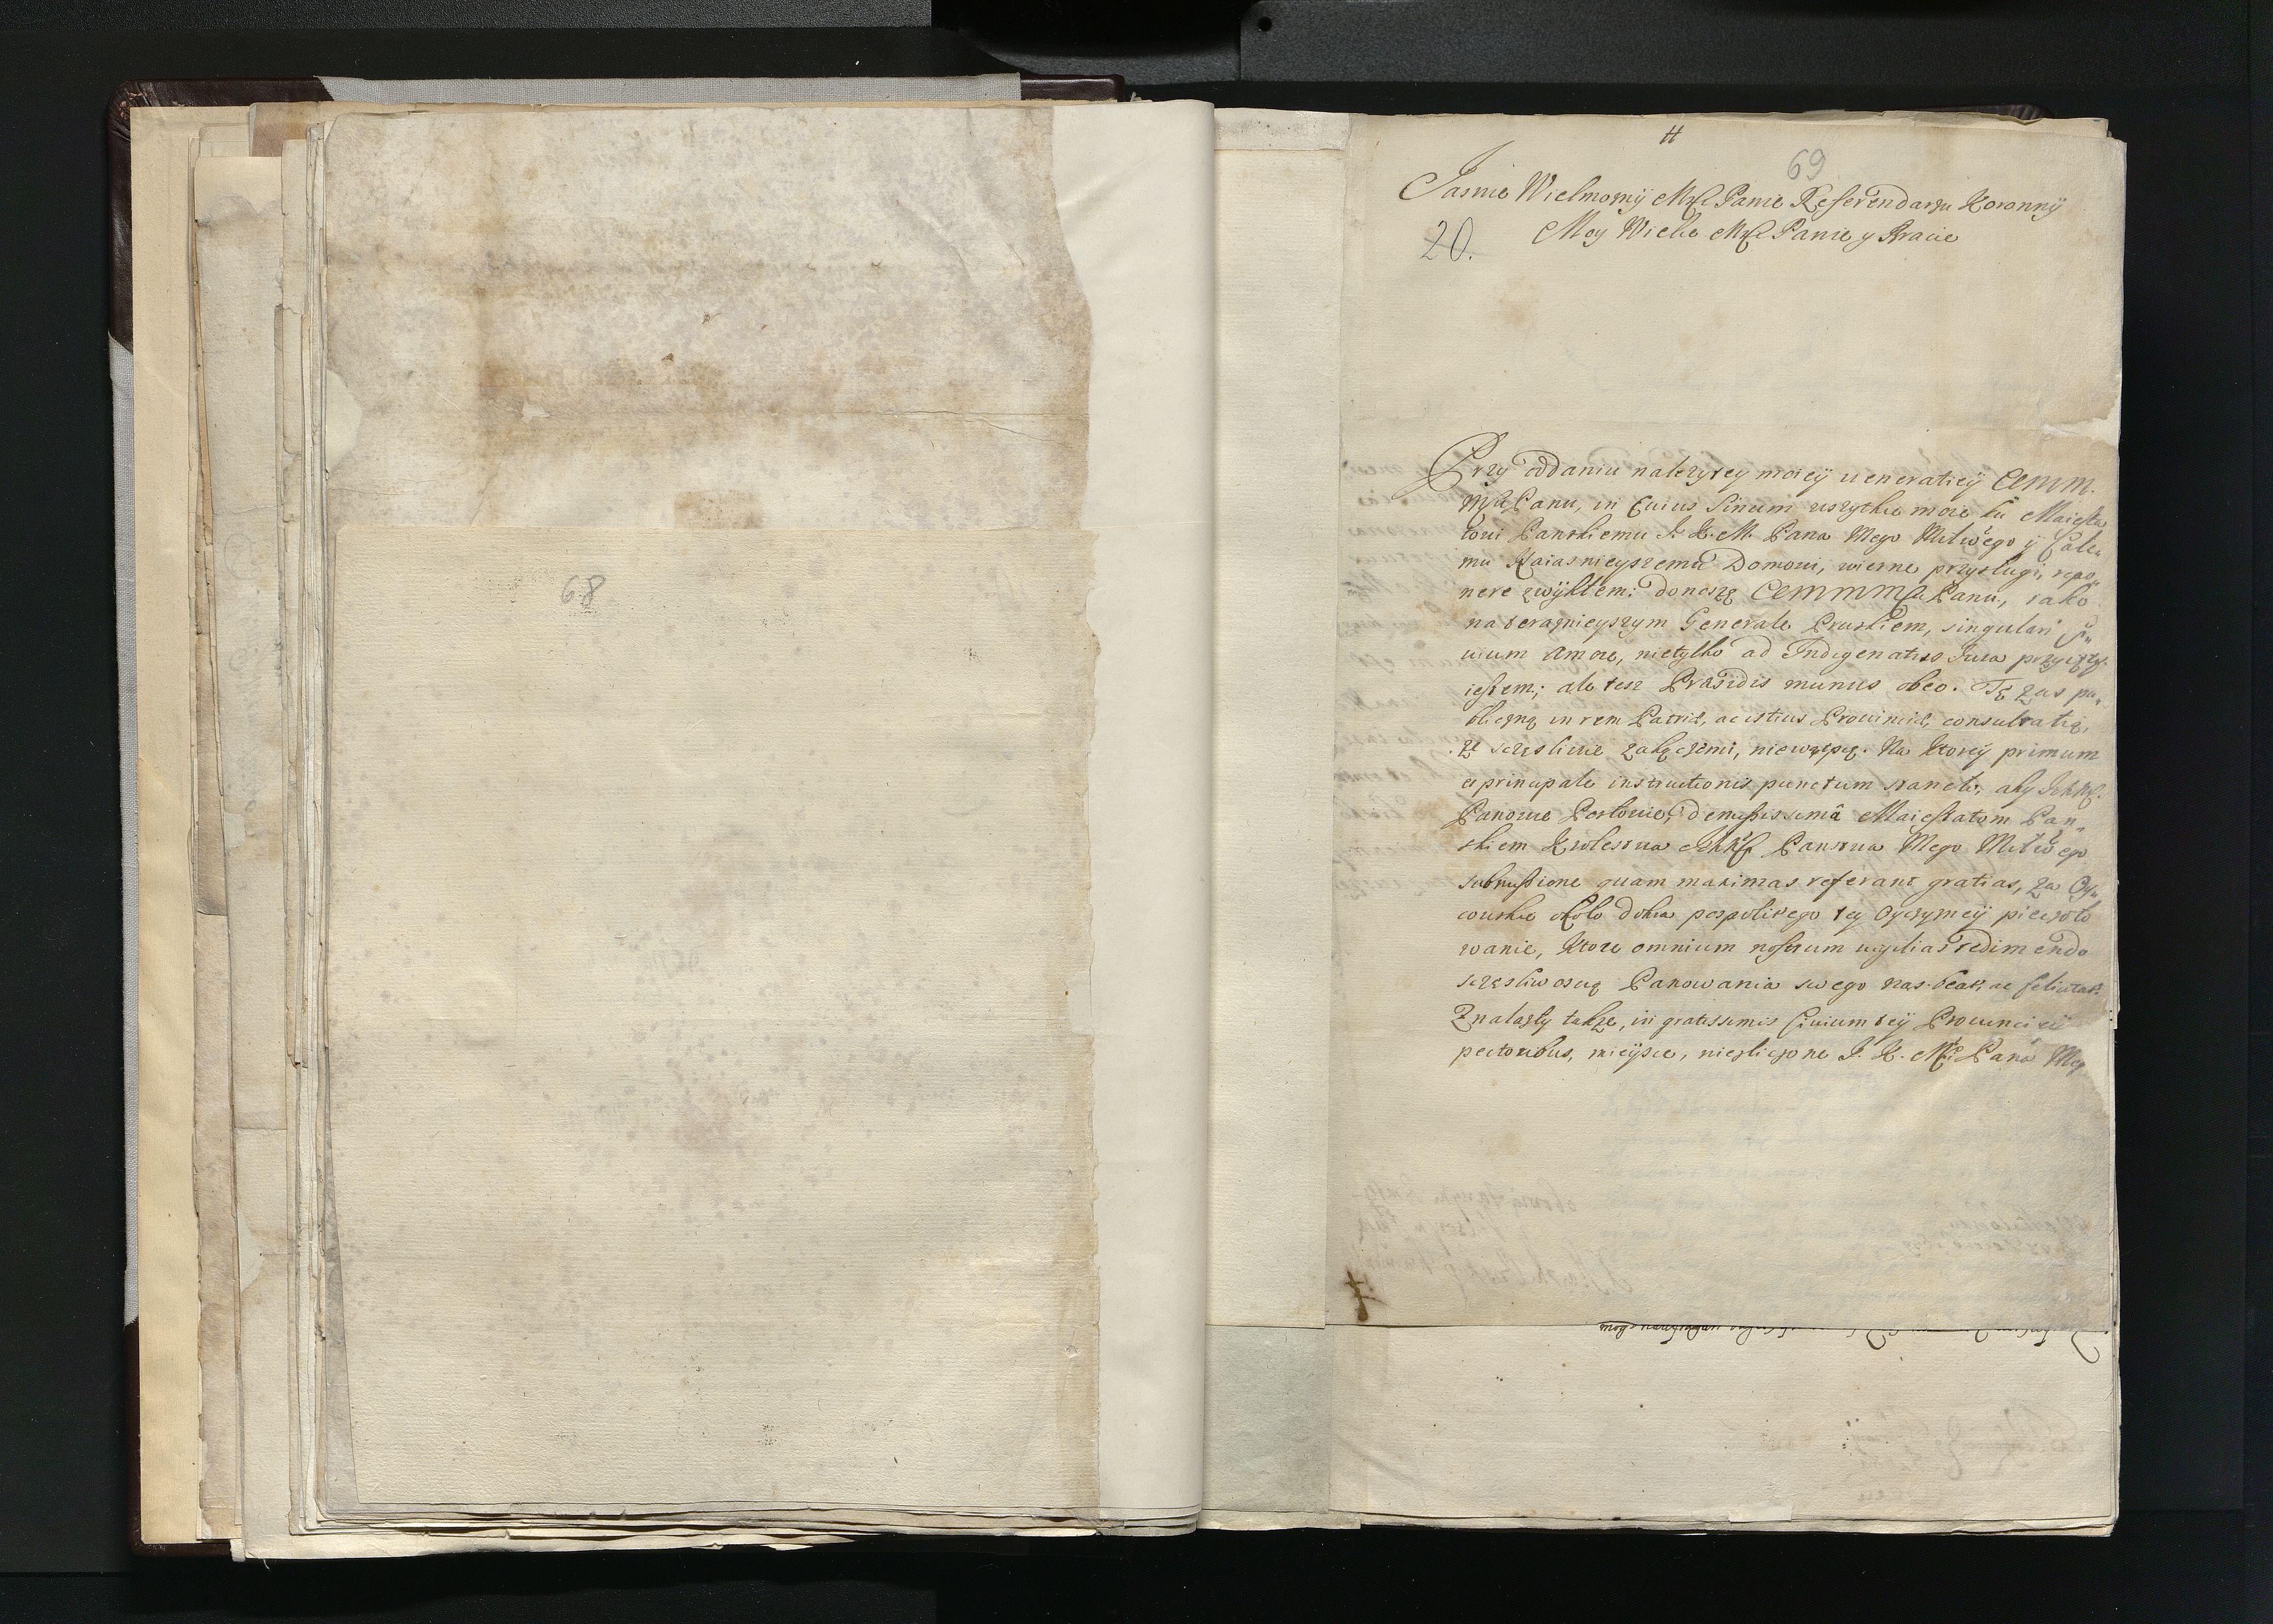 68
#
69
Jasnie Wielmozny Mcẜ Panie Referendarzu Koronnÿ
20.
Moy Wielce Mcẜ Panie y Bracie
Przy oddaniu nalezytey moieÿ veneratieÿ
Panu, in cuius Sinum wszytkie moie ku Maiesta
towi Panskiemu J. K. M. Pana Mego Miłwego ÿ Całe„
mu Naiasnieyszemu Domowi, wierne przysługi, repo„
nere zwÿkłem: donoszę Panu, iako
na teraznieyszym Generale Pruskiem, singulari Ci„
uium amore, nietylko ad Indigenatus Iura przyięty
iestem; ale tesz Præsidis munus obeo. Tę zas pu„
bliczną in rem Patriæ, ac istius Prouinciæ, consultatią,
ze sczesliwie zakączemi, niewątpię. Na ktoreÿ primum
et principale instructionis punctum stanęło, aby
Panowie Posłowie, demissimâ Maiestatom Pan„
skiem Krolestwa Panstwa Mego Miłwego
submissione quam maximas referant gratias, za Oy„
cowskie około dobra pospolitego teÿ Oyczyzneÿ pieczoło
wanie, ktore omnium nostrum vigilias redimendo
sczęsliwoscią Panowania swego nas beat, ac felicitat.
Znalazły takze, in gratissimis Ciuium teÿ Prouincieÿ
pectoribus, mieÿsce, niezliczone J. K. Mci Pana Meg